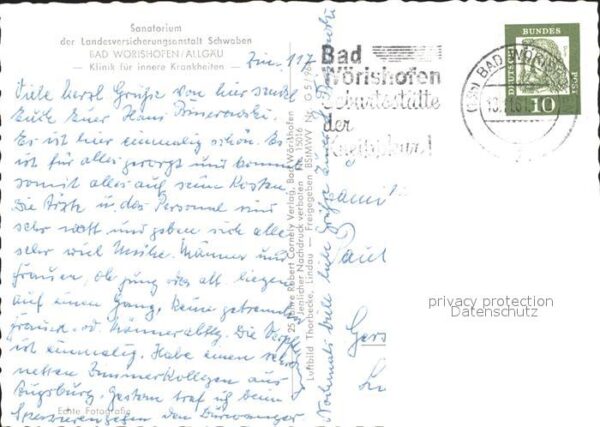 Sanatorium
der Landesversicherungsanstalt Schwaben
BAD WÖRISHOFEN/ALLGÄU
Klinik für innere Krankheiten
Zim. 117
Viele herzl. Grüße von hier sendet
Euch Euer Hans
Es ist hier einmalig schön. Es
ist für alles gesorgt und kommt
somit alles auf seine Kosten.
Die Ärzte u. das Personal sind
sehr nett und geben sich alle
sehr viel Mühe. Männer und
Frauen, ob jung oder alt liegen
auf einem Gang, keine getrennte
Frauen od. Männerabtlg. Die Verpfl.
ist einmalig. Habe einen sehr
netten Zimmerkollegen aus
Augsburg. Gestern traf ich beim
Spazierengehen den
Echte Fotografie
25 Jahre Robert Cornely Verlag, Bad Wörishofen
Jenslicher Nachdruck verboten Nr. 15016
Luftbild Thorbecke, Lindau — Freigegeben BStMWV Nr. G 5
Nochmals viele liebe Grüße
Bad
Wörishofen
Geburtsstätte
der
Kneippkur!
BAD WÖRISHOFEN
DEUTSCHE
BUNDES
POST
10
Paul
privacy protection
Datenschutz